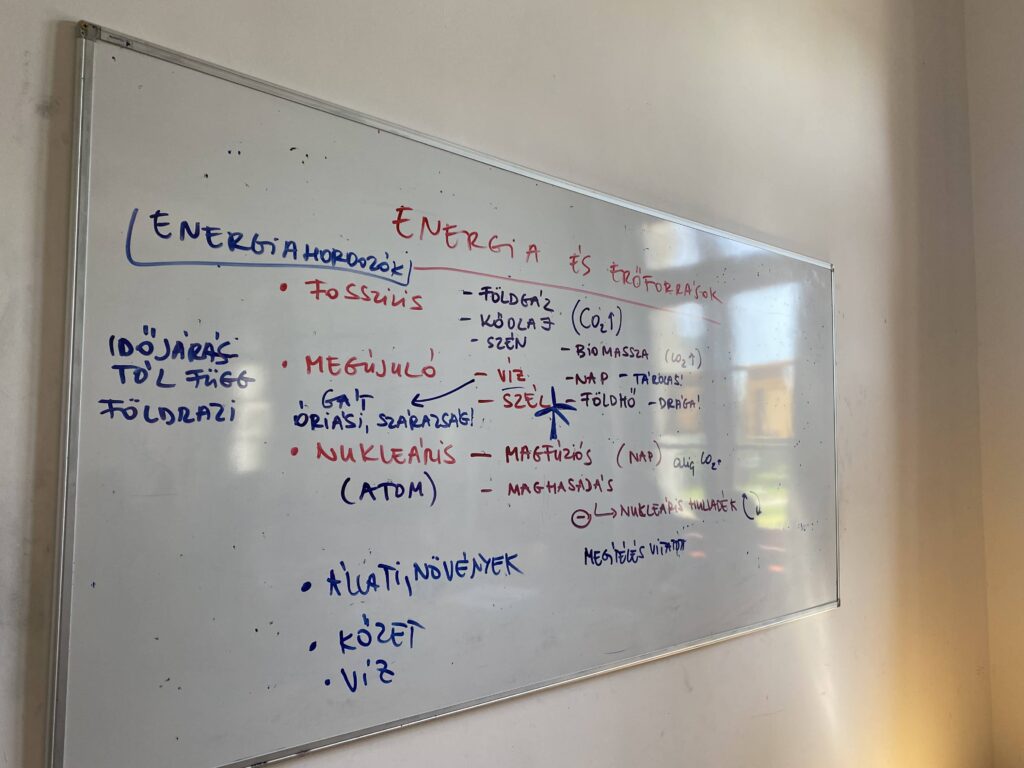 ENERGIA ÉS ERŐFORRÁSOK
ENERGIAHORDOZÓK
• FOSSZILIS
- FÖLDGÁZ
- KŐOLAJ (CO₂↑)
- SZÉN
IDŐJÁRÁS
TÓL FÜGG
FÖLDRAZI
• MEGÚJULÓ
- VÍZ
- SZÉL
- BIOMASSZA (CO₂↑)
- NAP - TÁROLÁS!
- FÖLDHŐ - DRÁGA!
GÁT
ÓRIÁSI, SZÁRAZSÁG!
• NUKLEÁRIS - MAGFÚZIÓS (NAP) alig CO₂
(ATOM) - MAGHASADÁS
⊖ ↳ NUKLEÁRIS HULLADÉK
MEGÍTÉLÉS VITATOTT
• ÁLLATI, NÖVÉNYEK
• KŐZET
• VÍZ